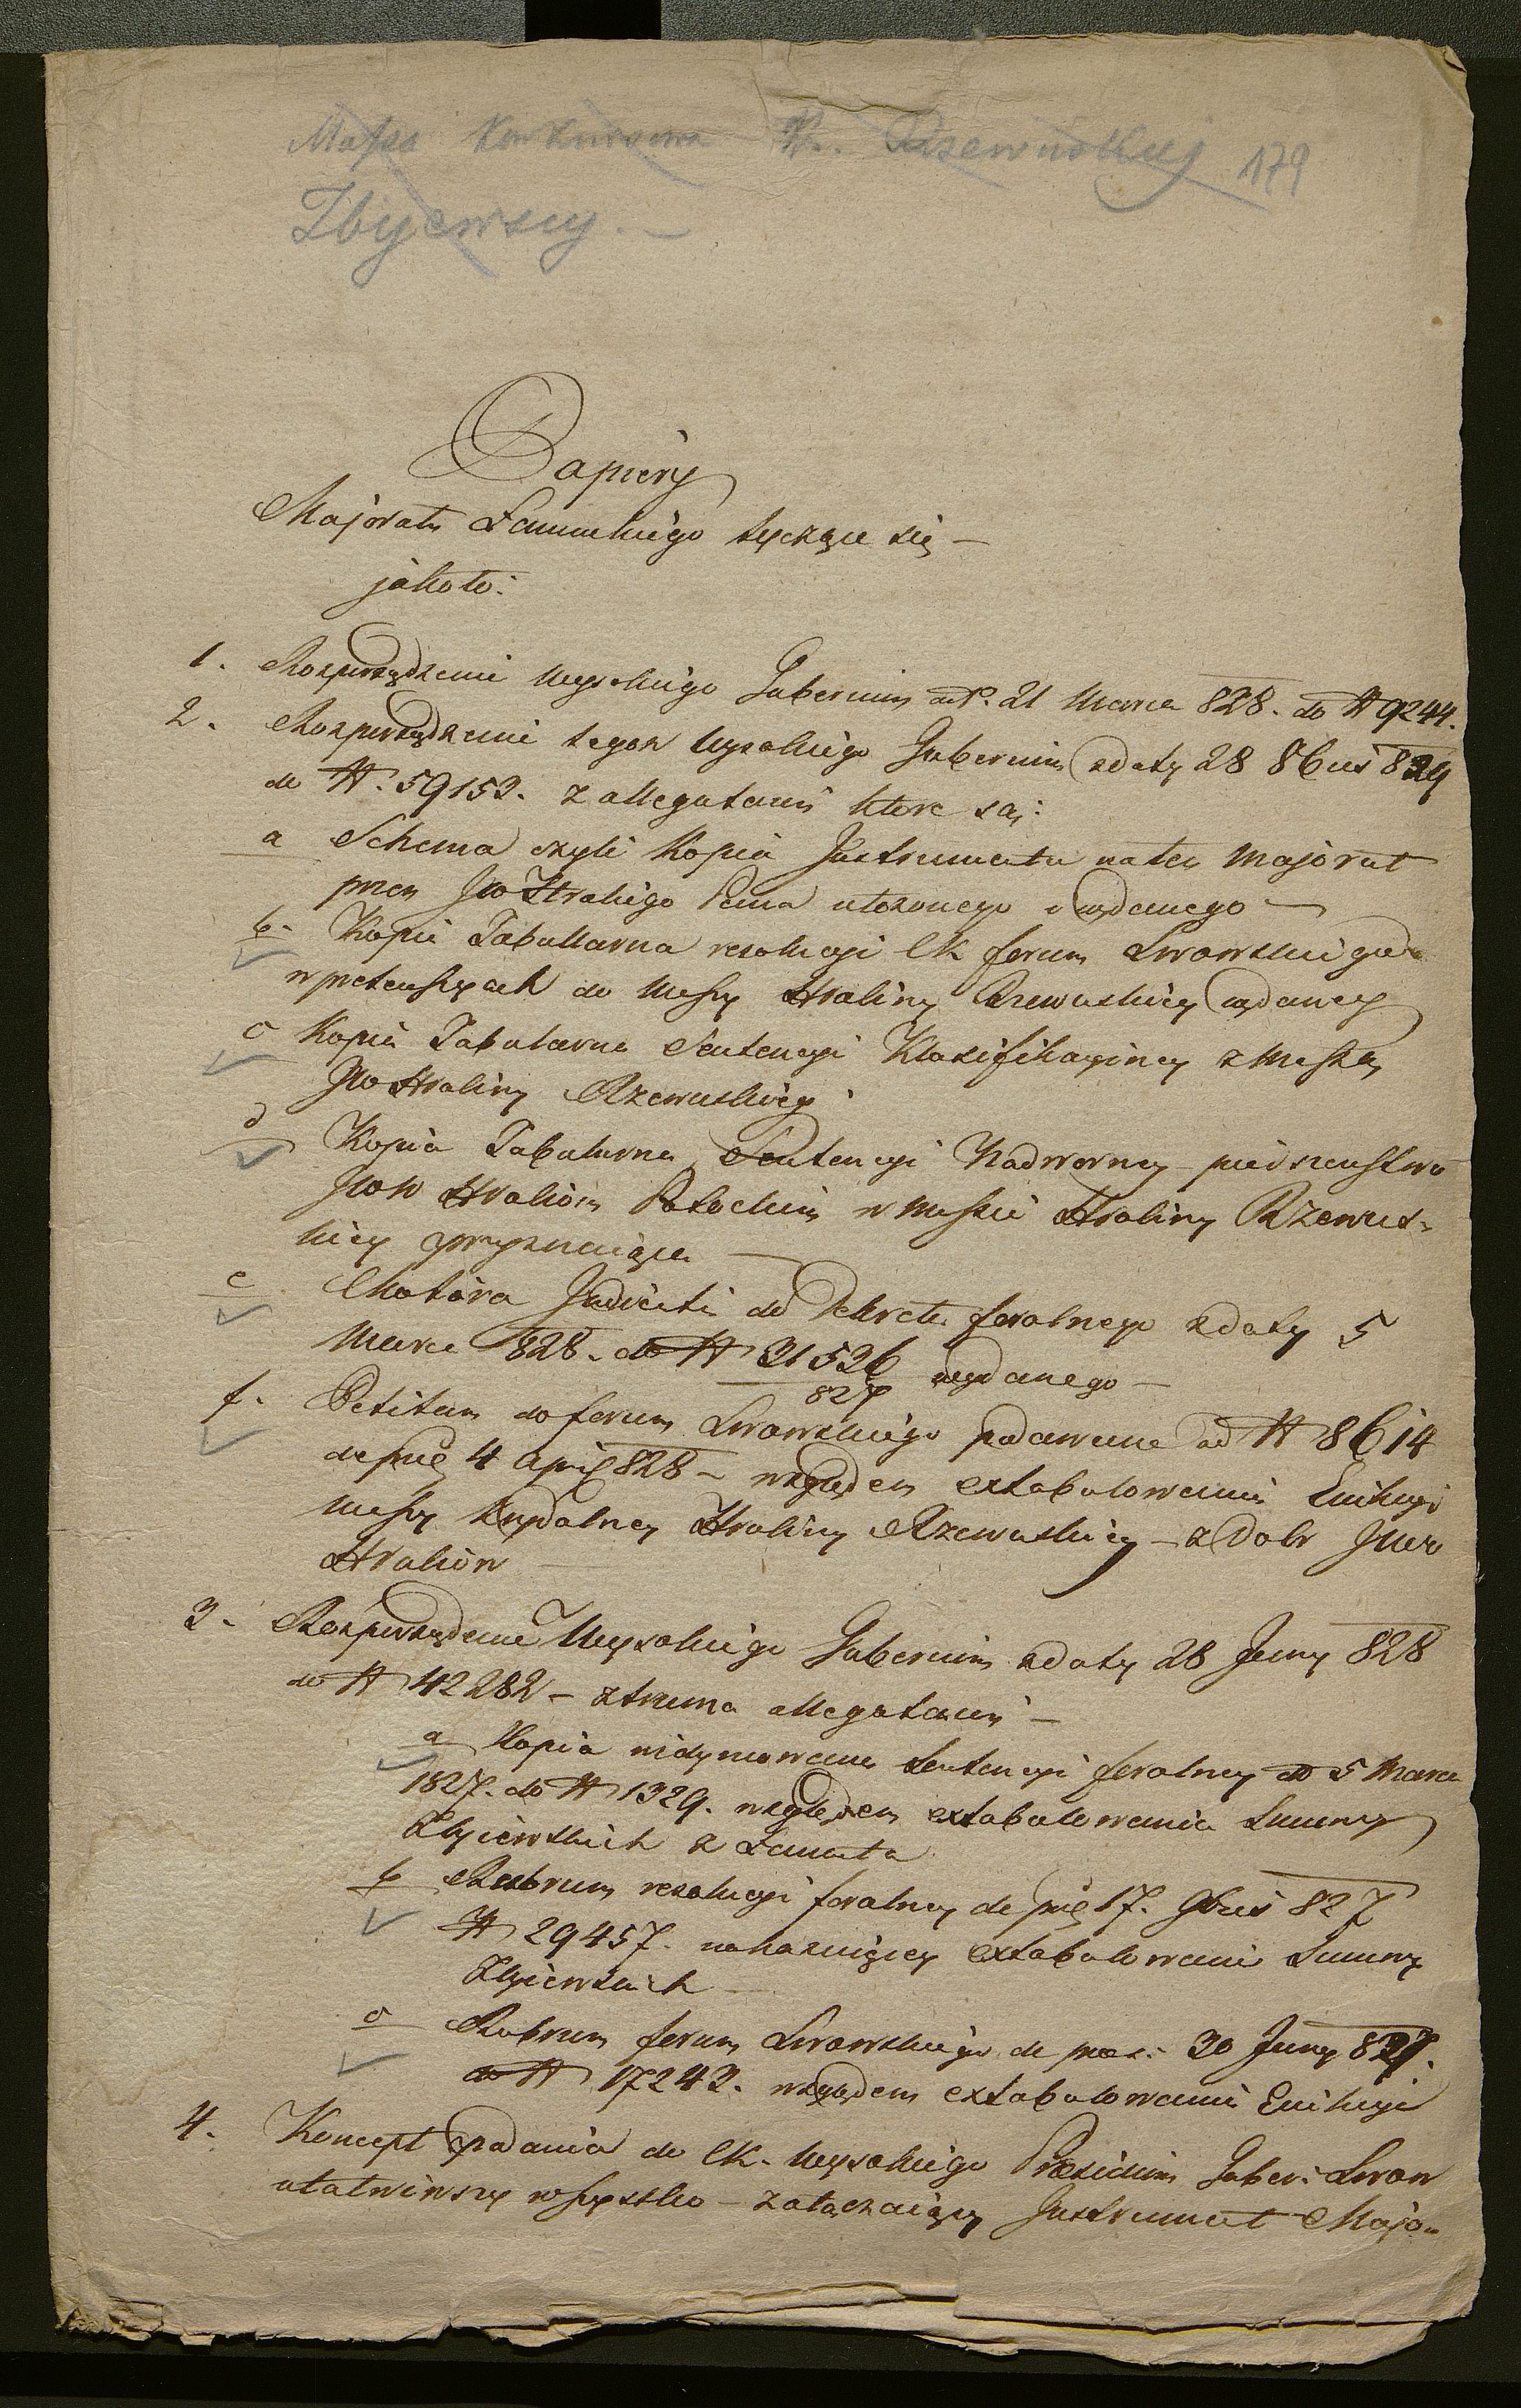 Massa Konkursowa Hr. Rzewuskiej 179
Zbijewscy. —
Papiery
Majoratu Łańcuckiego tyczące się —
jakoto:
1. Rozporządzenie wysokiego Gubernium 21 Marca 828. do N 9244.
2. Rozporządzenie tegoż wysokiego Gubernium z daty 28 8bris 829
do N. 59153. z allegatami które są:
a Schema czyli Kopia Instrumentu na ten Majorat
przez JW Hrabiego Pana ułożonego i wydanego —
b. Kopia Tabullarna rezolucyi CK forum Lwowskiego
w pretensyach do Massy Hrabiny Rzewuskiey wydaney
c Kopia Tabularna Sentencyi Klasifikacyiney z Massą
JW Hrabiny Rzewuskiey
d Kopia Tabularna Sentencyi Nadworney pierszeństwo
JWW Hrabiom Potockim w Massie Hrabiny Rzewus-
kiey przyznaiąca —
e Motiva Judicati do Dekretu foralnego z daty 5
Marca 828. do N 31526/827 wydanego —
f. Petitum do forum Lwowskiego podawane ad N 8614
de pręs 4 April 828 — względem extabulowania Ewikcyi
Massy krydalney Hrabiny Rzewuskiey — z Dobr JWW
Hrabiów —
3. Rozporządzenie Wysokiego Gubernium z daty 28 Juny 828
do N 42282 — z trzema allegatami —
a Kopia widymowana Sentencyi foralney dto 5 Marca
1827. do N 1329. względem extabulowania Summy
Zbyiewskich z Łańcuta
b Rubrum rezolucyi foralney de pręs 17. 9bris 827
N 29457. nakazuiącey extabulowanie Summy
Zbyiewskich —
c Rubrum forum Lwowskiego de præs: 30 Juny 827.
do N 17243. względem extabulowania Ewikcyi
4. Koncept podania do CK. wysokiego Præsidium Guber: Lwow
ułatwiwszy wszystko — załączaiący Instrument Majo-